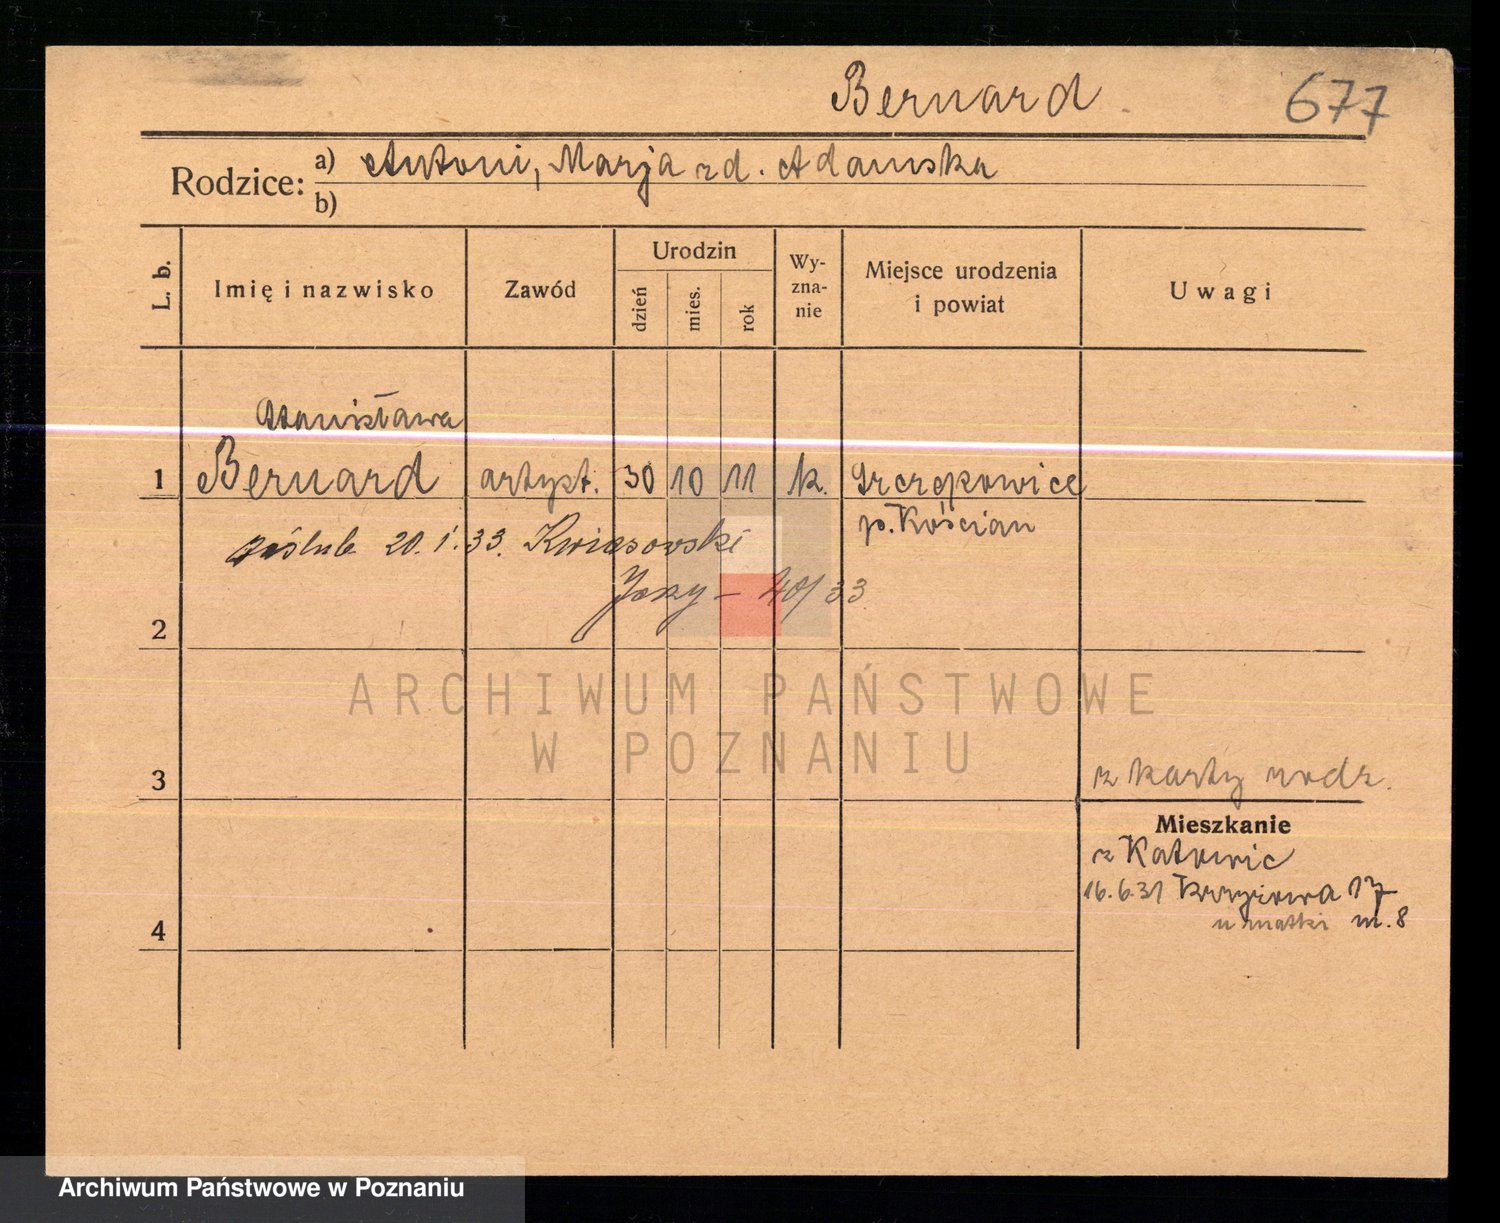 Bernard
677
Rodzice: a) Antoni, Marja zd. Adamska
b)
L. b.
Imię i nazwisko
Zawód
Urodzin
dzień
mies.
rok
Wy-
zna-
nie
Miejsce urodzenia
i powiat
Uwagi
Stanisława
1 Bernard artyst. 30 10 11 k. Szczepowice
p. Kościan
zaślub 20.1.33. Kwiasowski
Jerzy – 40/33
2
ARCHIWUM PAŃSTWOWE
W POZNANIU
3
z karty rodz.
Mieszkanie
z Katowic
16.6.31 Krzyżowa 17
u matki m. 8
4
Archiwum Państwowe w Poznaniu